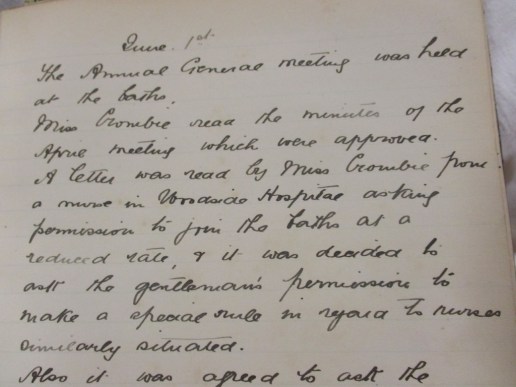 June. 1st.
The Annual General meeting was held
at the baths.
Miss Crombie read the minutes of the
April meeting which were approved.
A letter was read by Miss Crombie from
a nurse in Woodside Hospital asking
permission to join the baths at a
reduced rate, & it was decided to
ask the gentleman's permission to
make a special rule in regard to nurses
similarly situated.
Also it was agreed to ask the